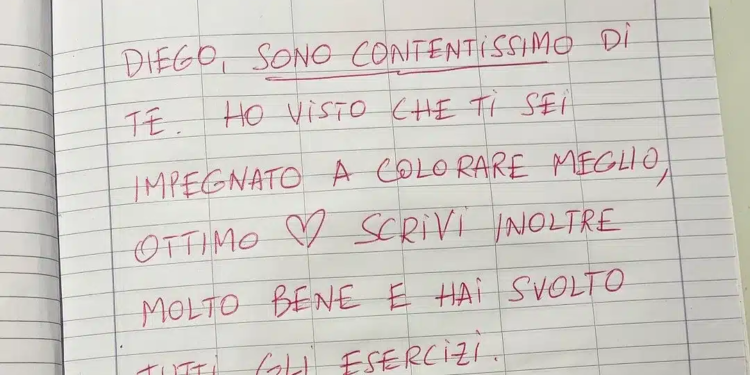 DIEGO, SONO CONTENTISSIMO DI
TE. HO VISTO CHE TI SEI
IMPEGNATO A COLORARE MEGLIO,
OTTIMO ♡ SCRIVI INOLTRE
MOLTO BENE E HAI SVOLTO
TUTTI GLI ESERCIZI.